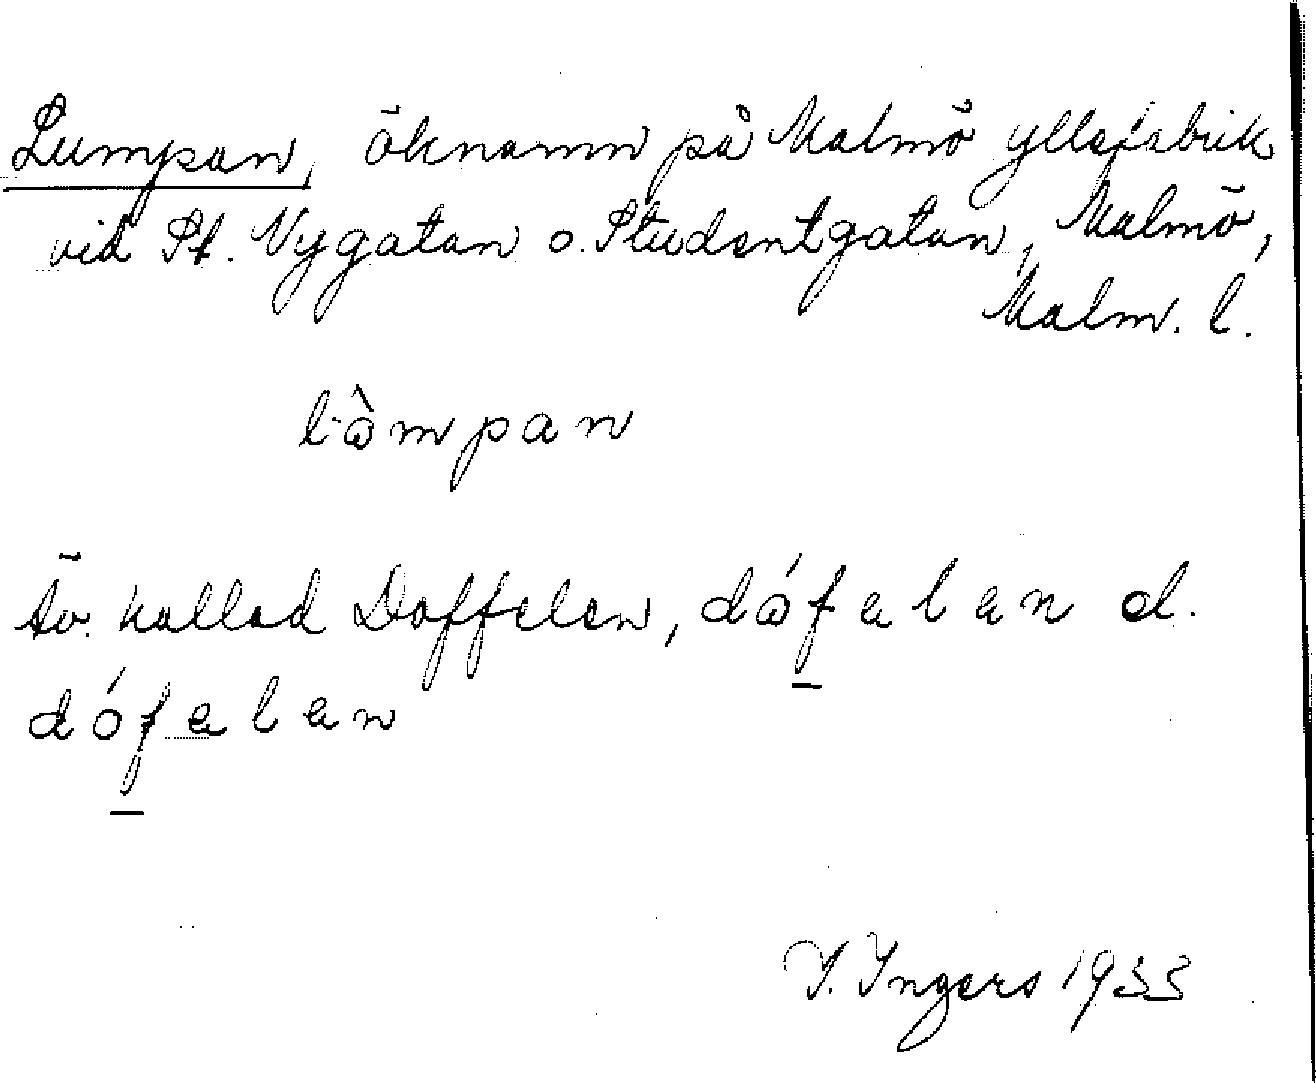 Lumpan, öknamn på Malmö yllefabrik
vid St. Nygatan o. Studentgatan, Malmö,
Malm. l.
lòmpan
Äv. kallad Doffelen, dófelen el.
dófelen
I. Ingers 1933